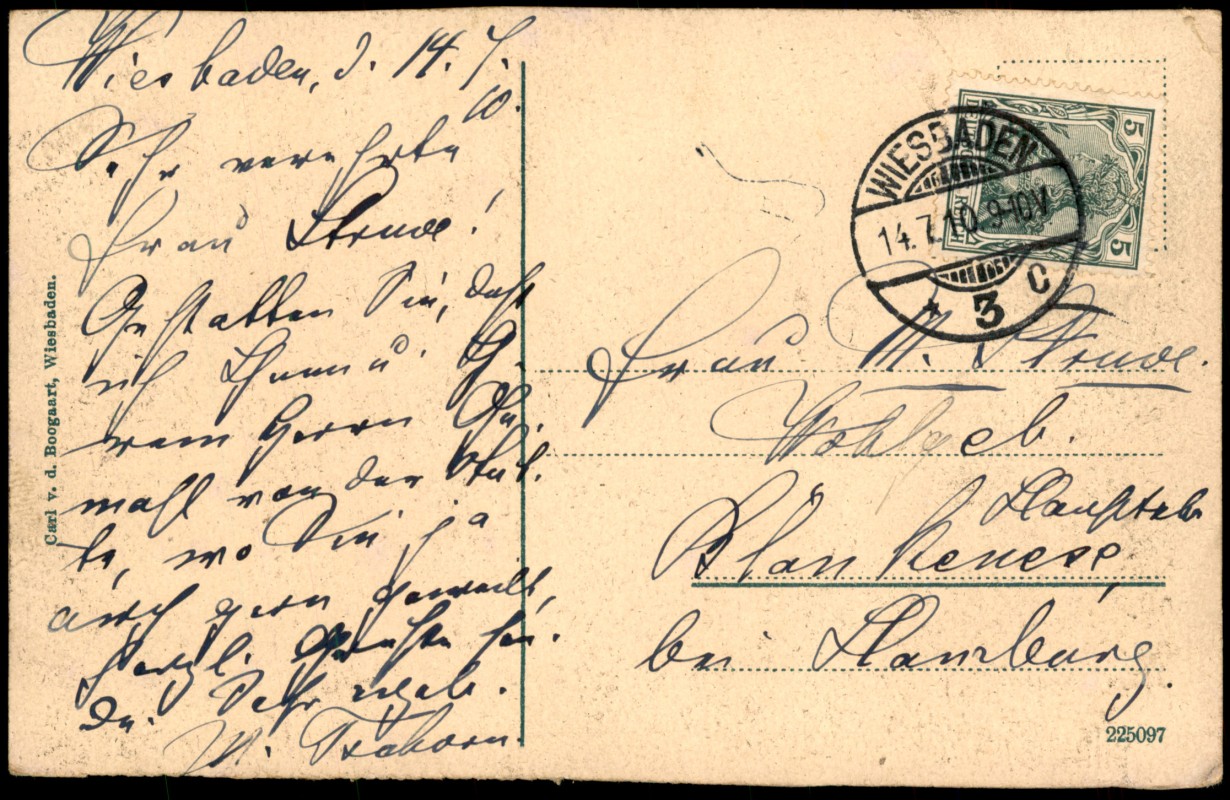 Wiesbaden, d. 14. 7.
10.
Sehr verehrte
Frau Struve!
Gestatten Sie, daß
ich Ihnen u. Ih-
rem Herrn Ge-
mahl von der Stät-
te, wo Sie ja
auch gern geweilt,
herzl. Grüße sen-
de. Sehr ergeb.
Carl v. d. Boogaart, Wiesbaden.
WIESBADEN
14.7.10.9-10V.
* 3 c
5
5
Frau M. Struve.
Wohlgeb.
Blankenese
bei Hamburg.
225097